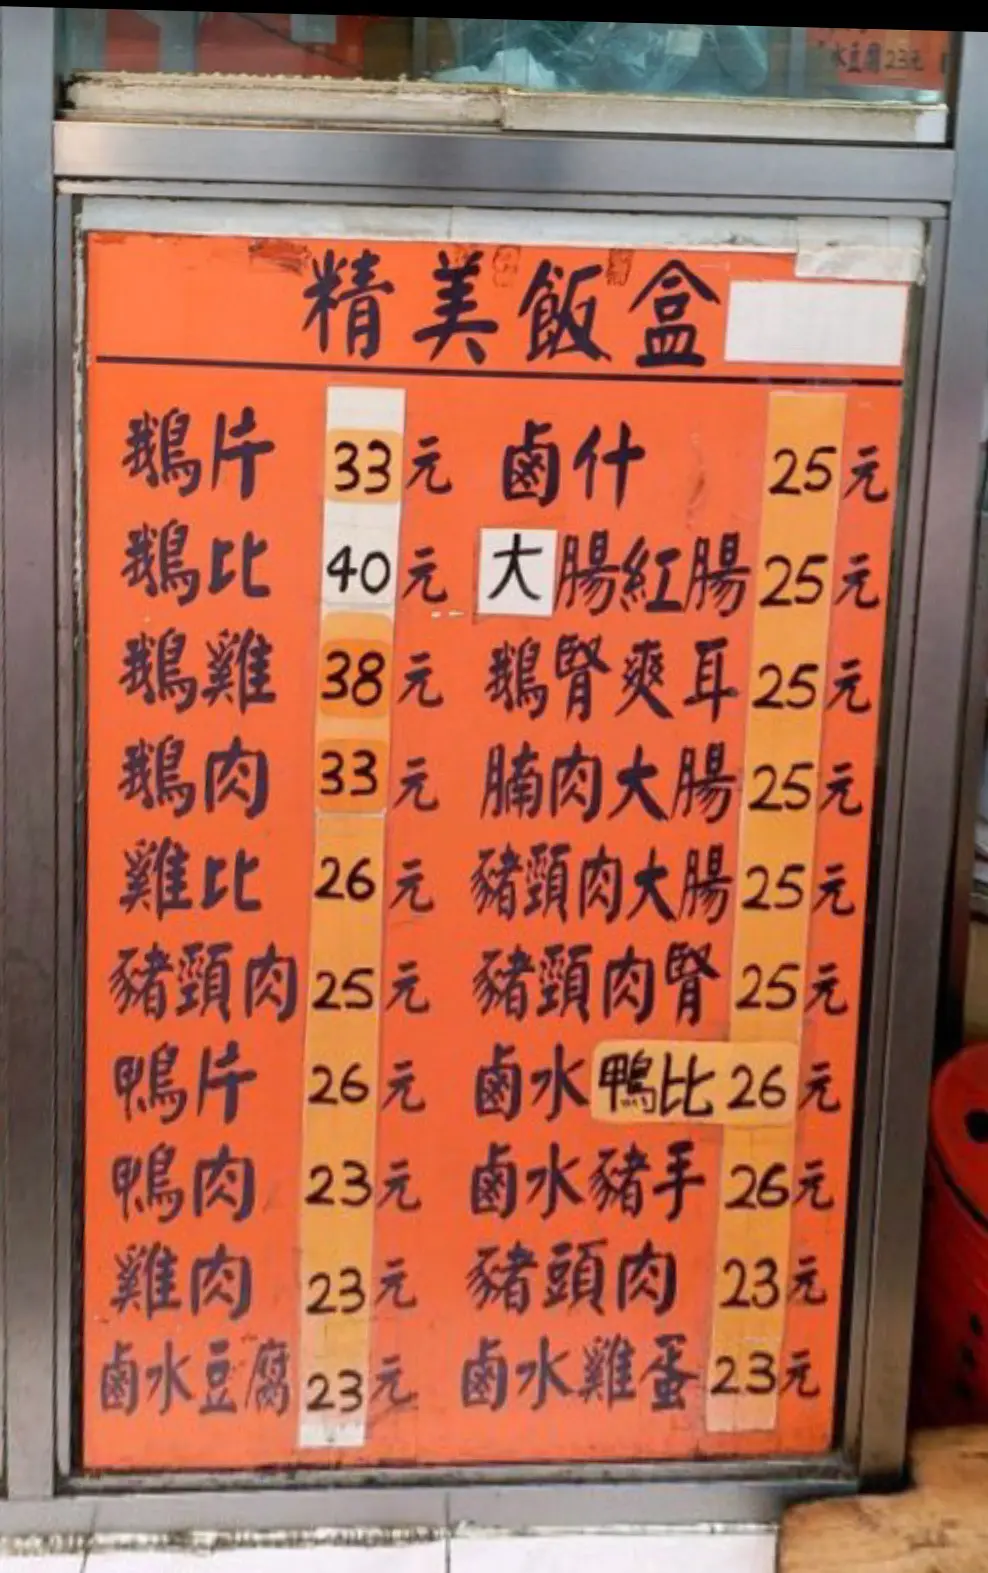 水豆腐23元
精美飯盒
鵝片 33元 鹵什 25元
鵝比 40元 大腸紅腸 25元
鵝雞 38元 鵝腎爽耳 25元
鵝肉 33元 腩肉大腸 25元
雞比 26元 豬頸肉大腸 25元
豬頸肉 25元 豬頸肉腎 25元
鴨片 26元 鹵水鴨比 26元
鴨肉 23元 鹵水豬手 26元
雞肉 23元 豬頭肉 23元
鹵水豆腐 23元 鹵水雞蛋 23元